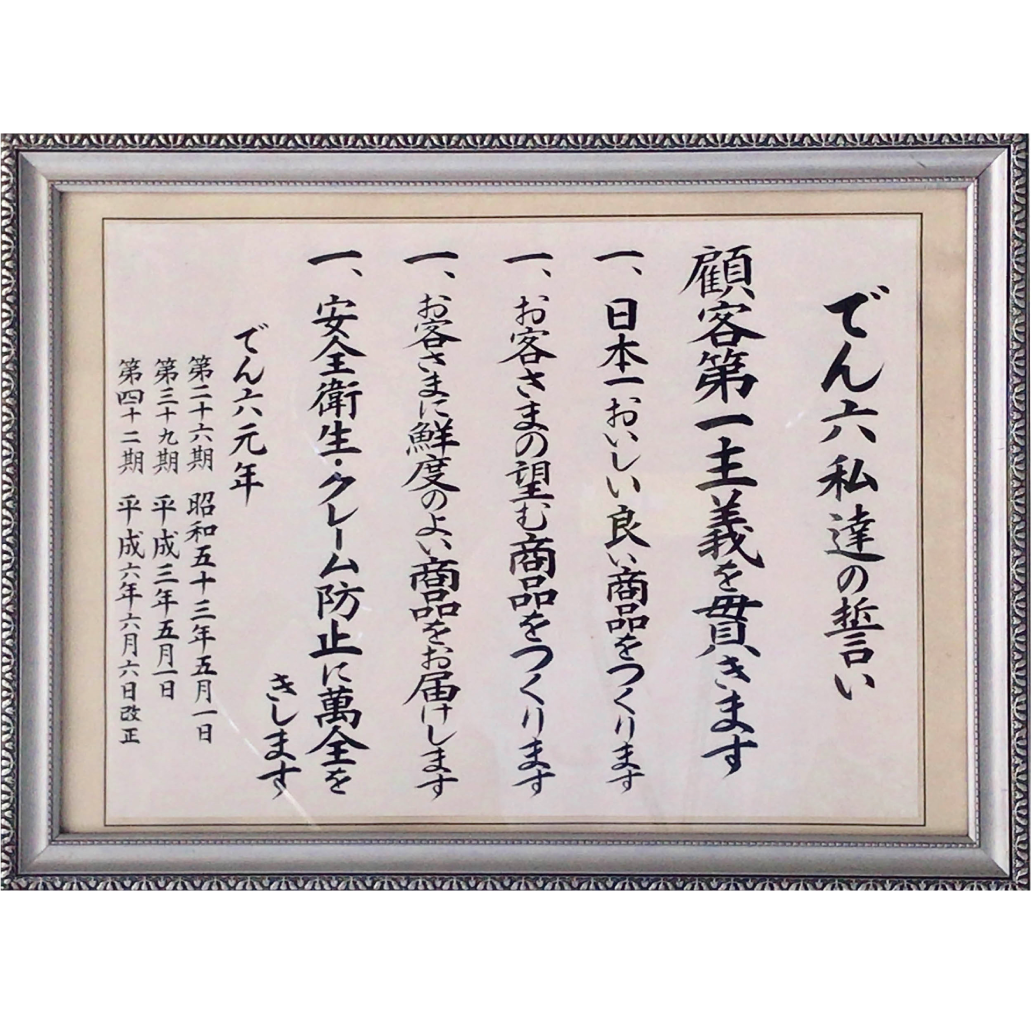 でん六私達の誓い
顧客第一主義を貫きます
一、日本一おいしい良い商品をつくります
一、お客さまの望む商品をつくります
一、お客さまに鮮度のよい商品をお届けします
一、安全衛生・クレーム防止に萬全を
きします
でん六元年
第二十六期 昭和五十三年五月一日
第三十九期 平成三年五月一日
第四十二期 平成六年六月六日改正